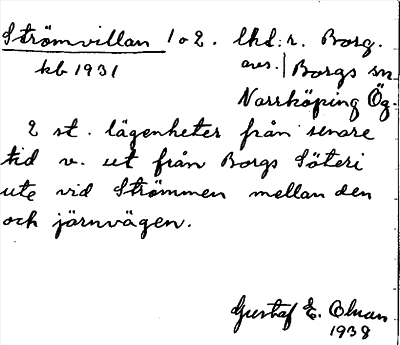 Strömvillan 1 o 2. lhd: r. Borg.
kb 1931 avs. | Borgs sn
Norrköping Ög.
2 st. lägenheter från senare
tid v. ut från Borgs Säteri
ute vid Strömmen mellan den
och järnvägen.
Gustaf E. Olman
1938